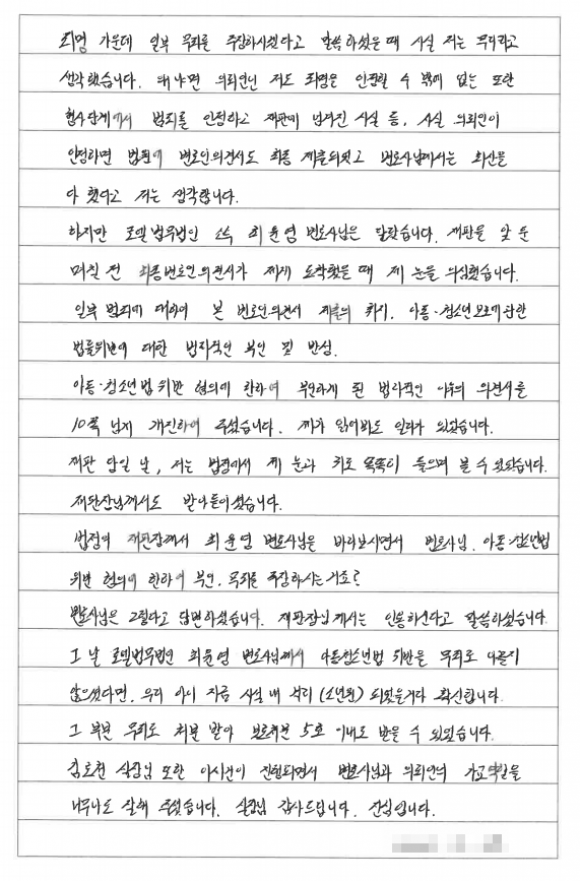 죄명 가운데 일부 무죄를 주장하시겠다고 말씀하셨을 때 사실 저는 무리라고
생각했습니다. 왜냐면 의뢰인인 저도 죄명을 인정할 수 밖에 없는 또한
형사단계에서 범죄를 인정하고 재판에 넘겨진 사실 등. 사실 의뢰인이
인정하면 법원에 변호인의견서도 최종 제출되었고 변호사님께서는 최선을
다 했다고 저는 생각합니다.
하지만 로엘법무법인 소속 최윤영 변호사님은 달랐습니다. 재판을 앞 둔
며칠 전 최종변호인의견서가 제게 도착했을 때 제 눈을 의심했습니다.
일부 범죄에 대하여 본 변호인의견서 제출의 취지. 아동·청소년보호에관한
법률위반에 대한 법리적인 부인 및 반성.
아동·청소년법위반 혐의에 한하여 부인하게 된 법리적인 이유의 의견서를
10쪽 넘게 개진하여 주셨습니다. 제가 읽어봐도 일리가 있었습니다.
재판 당일 날, 저는 법정에서 제 눈과 귀로 똑똑히 들으며 볼 수 있었습니다.
재판장님께서도 받아들이셨습니다.
법정에 재판장께서 최윤영 변호사님을 바라보시면서 변호사님. 아동·청소년법
위반 혐의에 한하여 부인. 무죄를 주장하시는거죠?
변호사님은 그렇다고 답변하셨습니다. 재판장님께서는 인용하신다고 말씀하셨습니다.
그 날 로엘법무법인 최윤영 변호사님께서 아동청소년법 위반을 무죄로 다투지
않으셨다면, 우리 아이 지금 시설 내 처리 (소년원) 되었을거라 확신합니다.
그 부분 무죄도 처분 받아 보호처분 5호 이내도 받을 수 있었습니다.
실장님 또한 이사건이 진행되면서 변호사님과 의뢰인의 가교역할을
너무나도 잘해 주셨습니다. 실장님 감사드립니다. 진심입니다.